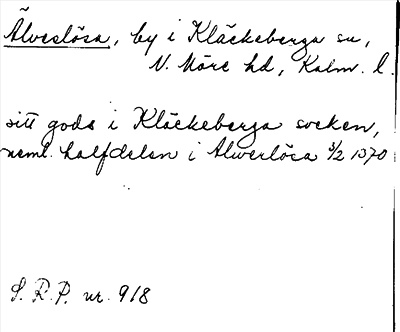 Älverlösa, by i Kläckeberga sn,
N. Möre hd, Kalm. l.
sitt gods i Kläckeberga socken,
neml. halfdelen i Alwerlösa 3/2 1370
S. R. P. nr. 918